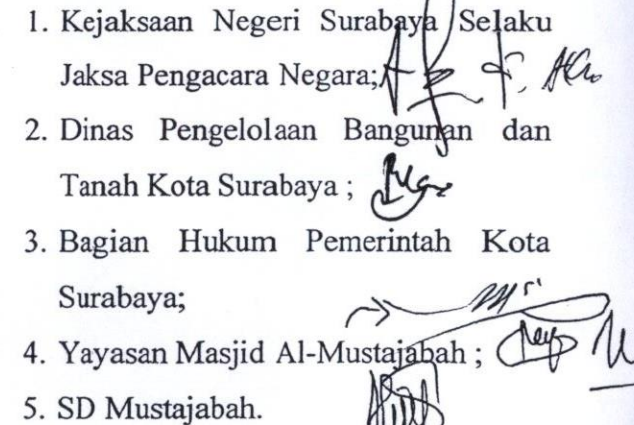 1. Kejaksaan Negeri Surabaya Selaku
Jaksa Pengacara Negara;
2. Dinas Pengelolaan Bangunan dan
Tanah Kota Surabaya ;
3. Bagian Hukum Pemerintah Kota
Surabaya;
4. Yayasan Masjid Al-Mustajabah ;
5. SD Mustajabah.